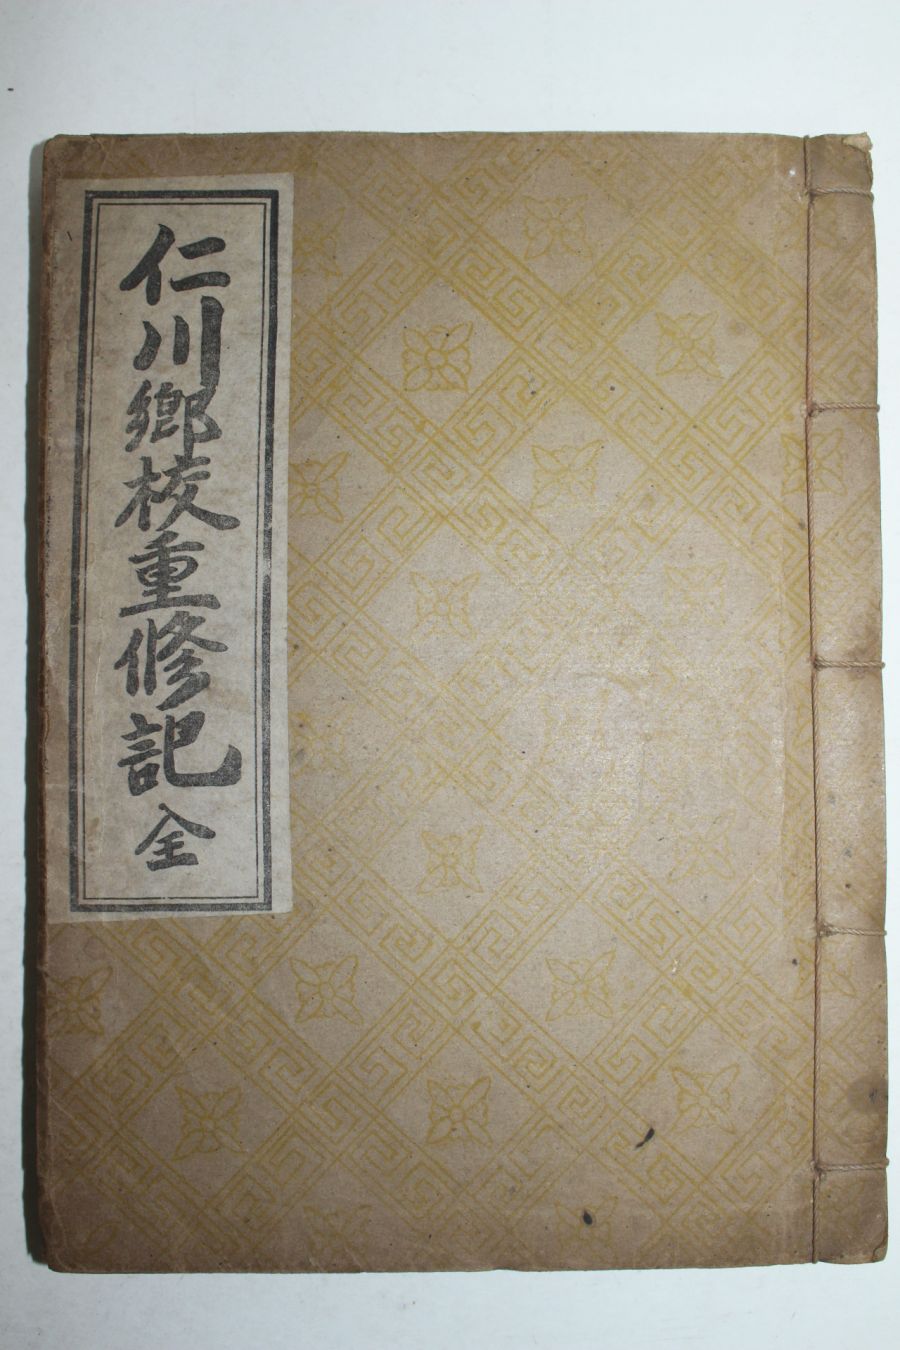 仁川鄉校重修記 全